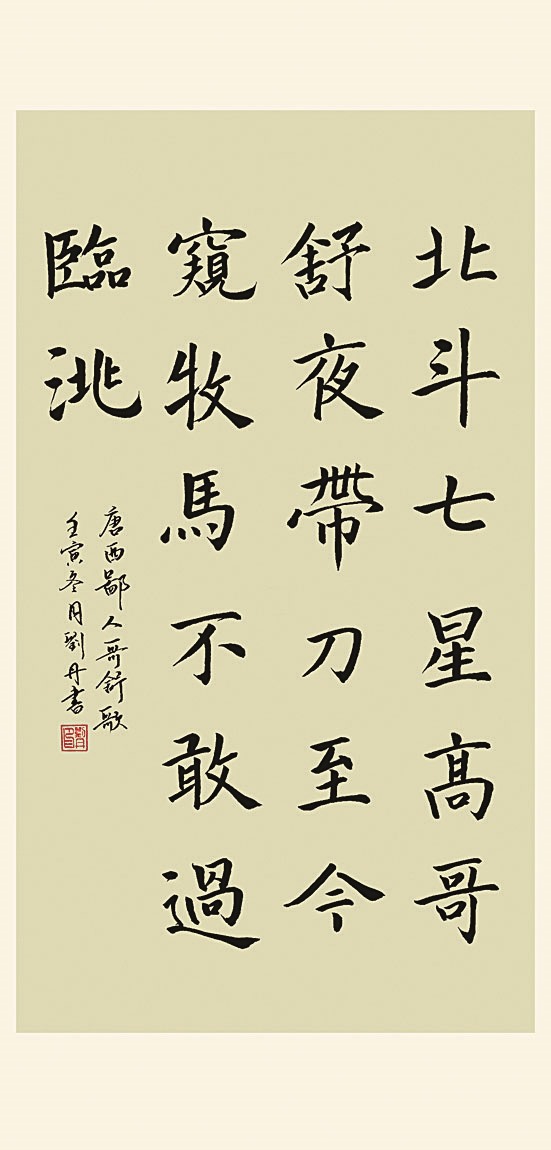 北斗七星髙哥
舒夜帶刀至今
窺牧馬不敢過
臨洮
唐西鄙人哥舒歌
壬寅冬月劉丹書